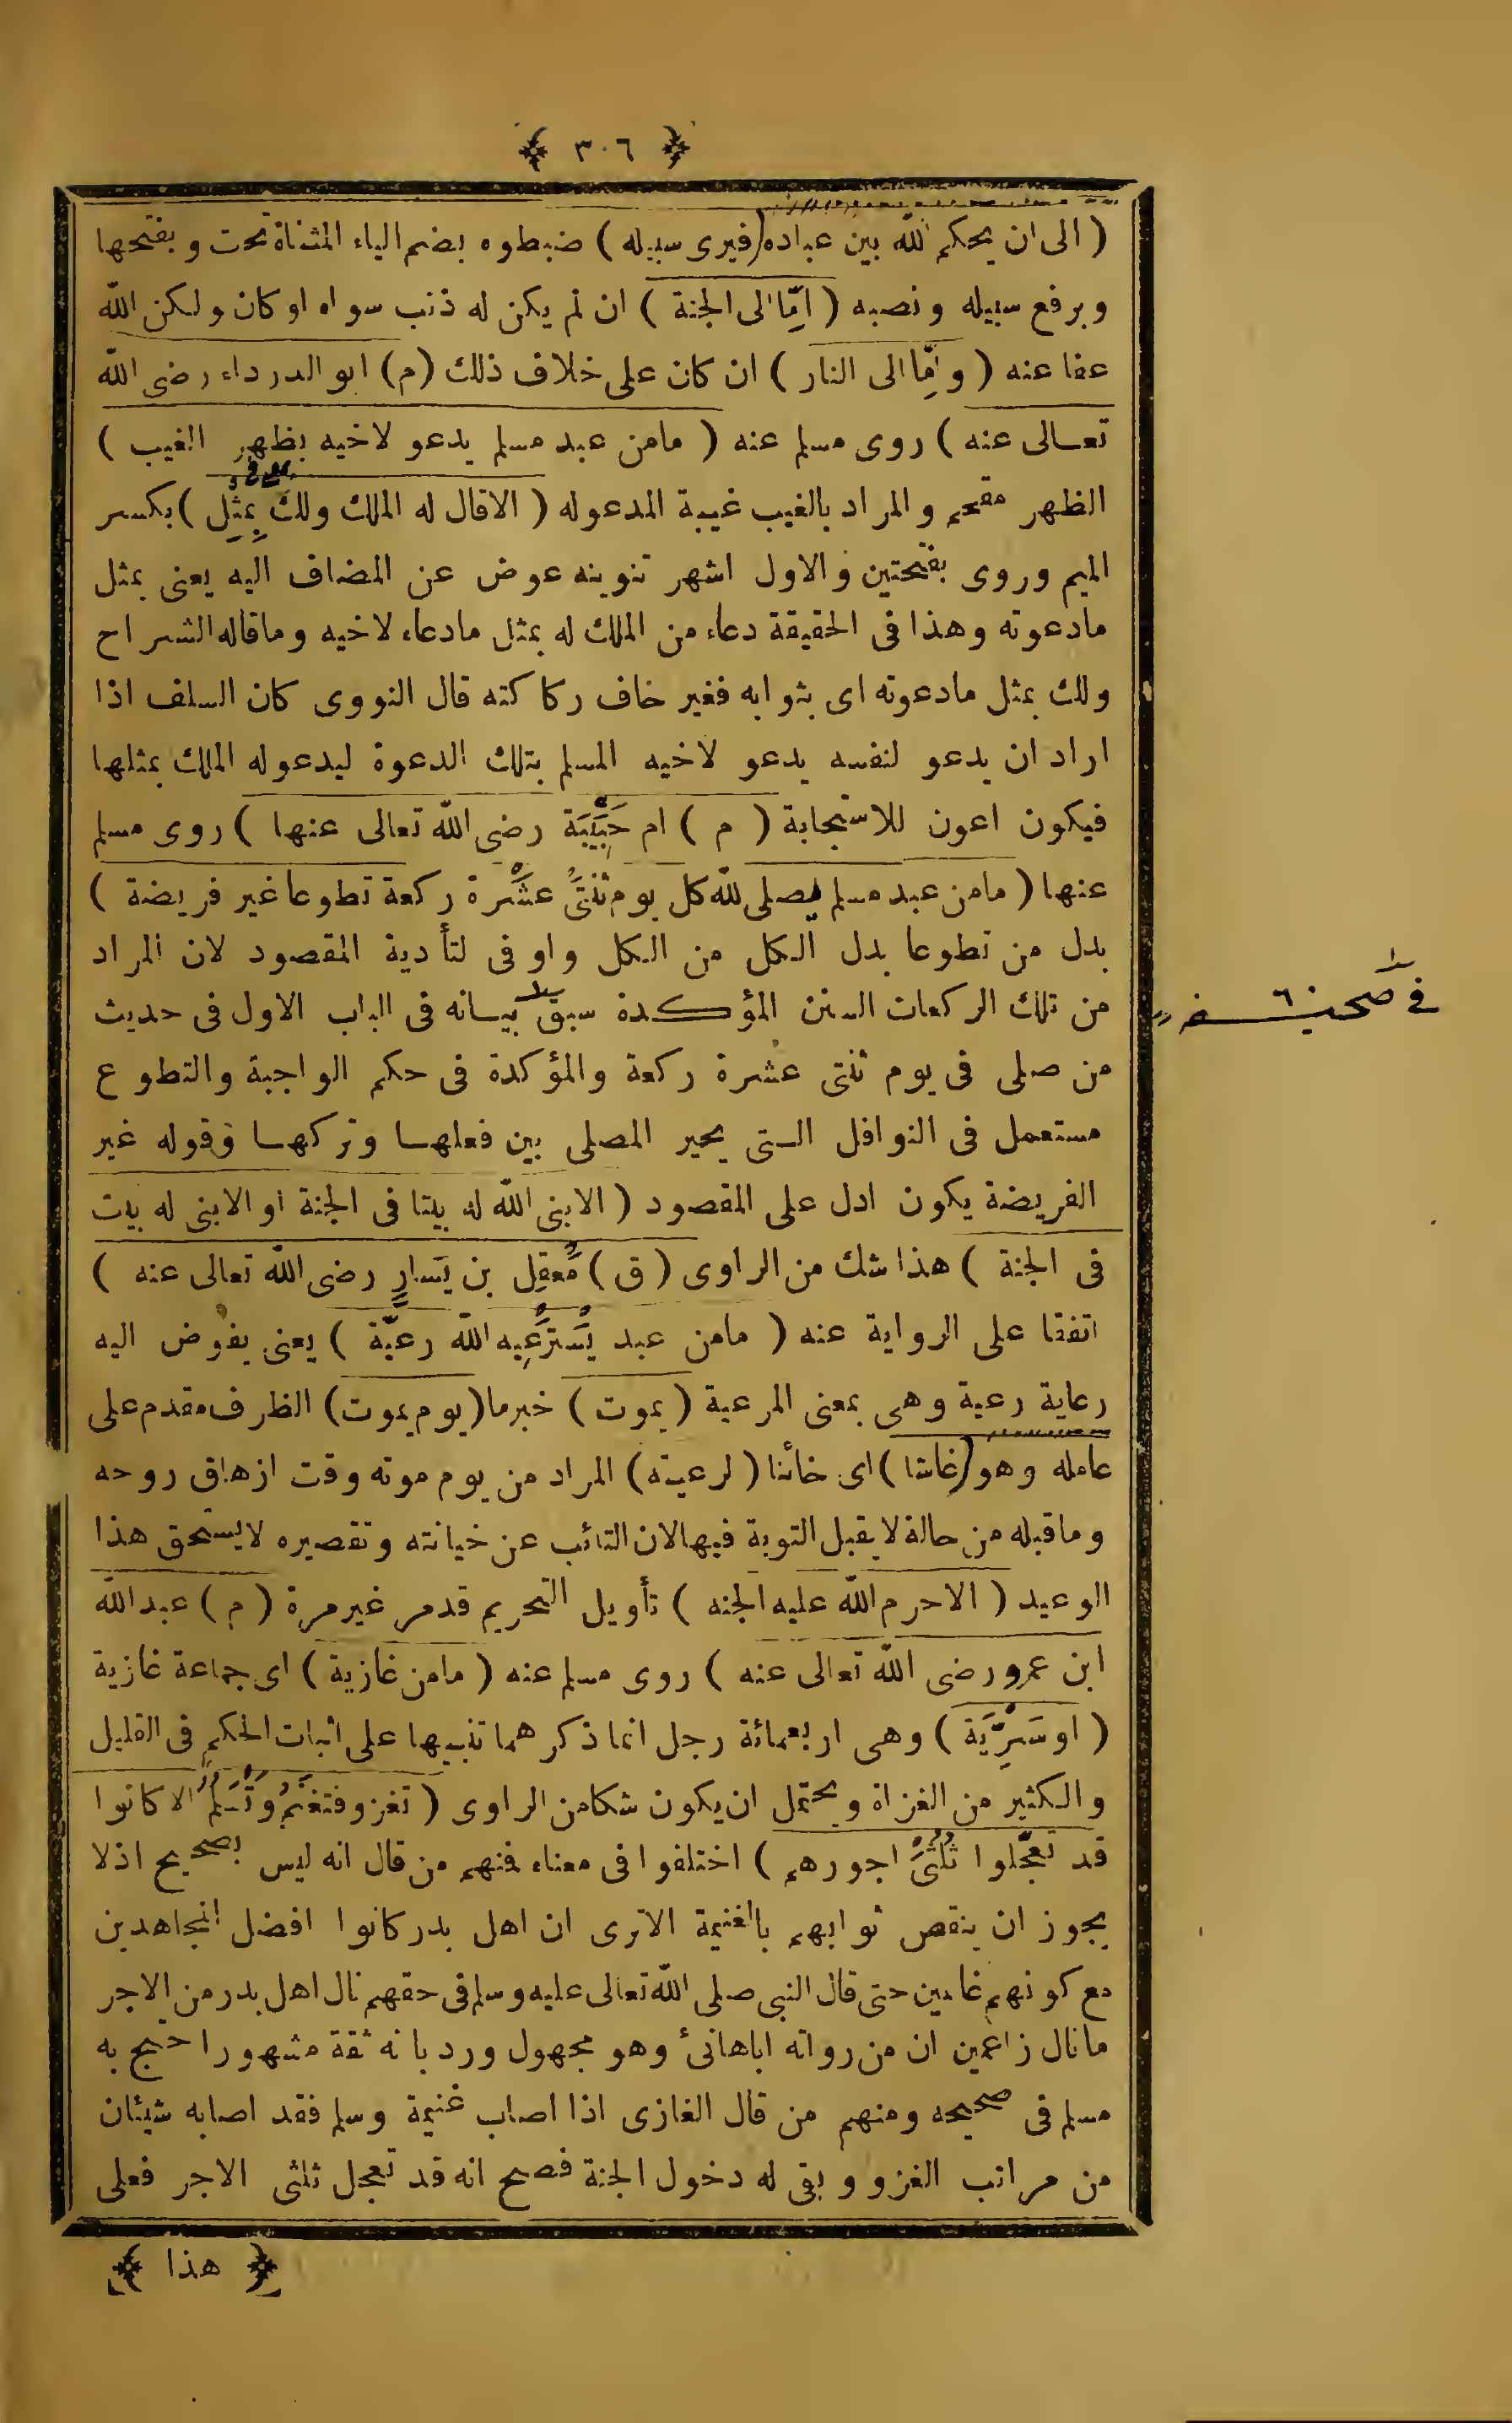 ﴿ ٣٠٦ ﴾
( الى ان يحكم الله بين عباده (فيرى سبيله ) ضبطوه بضم الياء المثناة تحت و بفتحها
و برفع سبيله و نصبه ( اِمّا الى الجنة ) ان لم يكن له ذنب سواه او كان ولكن الله
عفا عنه ( و اِمّا الى النار ) ان كان على خلاف ذلك (م) ابو الدرداء رضى الله
تعالى عنه ) روى مسلم عنه ( مامن عبد مسلم يدعو لاخيه بظهر الغيب )
الظهر مقحم و المراد بالغيب غيبة المدعوله ( الاقال له الملك ولك بِمِثْلِ ) بكسر
الميم وروى بفتحتين والاول اشهر تنوينه عوض عن المضاف اليه يعنى بمثل
مادعوته وهذا فى الحقيقة دعاء من الملك له بمثل مادعاء لاخيه وماقاله الشراح
ولك بمثل مادعوته اى بثوابه فغير خاف ركاكته قال النووى كان السلف اذا
اراد ان يدعو لنفسه يدعو لاخيه المسلم بتلك الدعوة ليدعوله الملك بمثلها
فيكون اعون للاستجابة ( م ) ام حَبِيبَة رضى الله تعالى عنها ) روى مسلم
عنها ( مامن عبد مسلم يصلى لله كل يوم ثنتى عشرة ركعة تطوعا غير فريضة )
بدل من تطوعا بدل الكل من الكل واوفى لتأدية المقصود لان المراد
من تلك الركعات السنن المؤكدة سبق بيانه فى الباب الاول فى حديث
من صلى فى يوم ثنتى عشرة ركعة والمؤكدة فى حكم الواجبة والتطوع
مستعمل فى النوافل التى يخير المصلى بين فعلها وتركها وقوله غير
الفريضة يكون ادل على المقصود ( الابنى الله له بيتا فى الجنة او الابنى له بيت
فى الجنة ) هذا شك من الراوى ( ق ) مَعقِل بن يَسارٍ رضى الله تعالى عنه )
اتفقا على الرواية عنه ( مامن عبد يَسْتَرْعِيه الله رعيّة ) يعنى يفوض اليه
رعاية رعية وهى بمعنى المرعية ( يموت ) خبرما (يوم يموت) الظرف مقدم على
عامله وهو (غاشا) اى خائنا ( لرعيته) المراد من يوم موته وقت ازهاق روحه
وماقبله من حالة لايقبل التوبة فيها لان التائب عن خيانته وتقصيره لايستحق هذا
الوعيد ( الاحرم الله عليه الجنه ) تأويل التحريم قدمر غيرمرة ( م ) عبدالله
ابن عمرو رضى الله تعالى عنه ) روى مسلم عنه ( مامن غازية ) اى جماعة غازية
( او سَرِيَّة ) وهى اربعمائة رجل انما ذكرهما تنبيها على اثبات الحكم فى القليل
والكثير من الغزاة ويحتمل ان يكون شكامن الراوى ( تغزو فتغنَمُ وتَسْلَمُ الا كانوا
قد تعجّلوا ثُلُثَىْ اجورهم ) اختلفوا فى معناه فنهم من قال انه ليس بصحيح اذلا
يجوز ان ينقص ثوابهم بالغنيمة الاترى ان اهل بدر كانوا افضل المجاهدين
مع كونهم غانمين حتى قال النبى صلى الله تعالى عليه وسلم فى حقهم نال اهل بدر من الاجر
مانال زاعمين ان من رواته اباهانئ وهو مجهول ورد بانه ثقة مشهور احتج به
مسلم فى صحيحه ومنهم من قال الغازى اذا اصاب غنيمة وسلم فقد اصابه شيئان
من مراتب الغزو و بقى له دخول الجنة فصح انه قد تعجل ثلثى الاجر فعلى
﴿ هذا ﴾